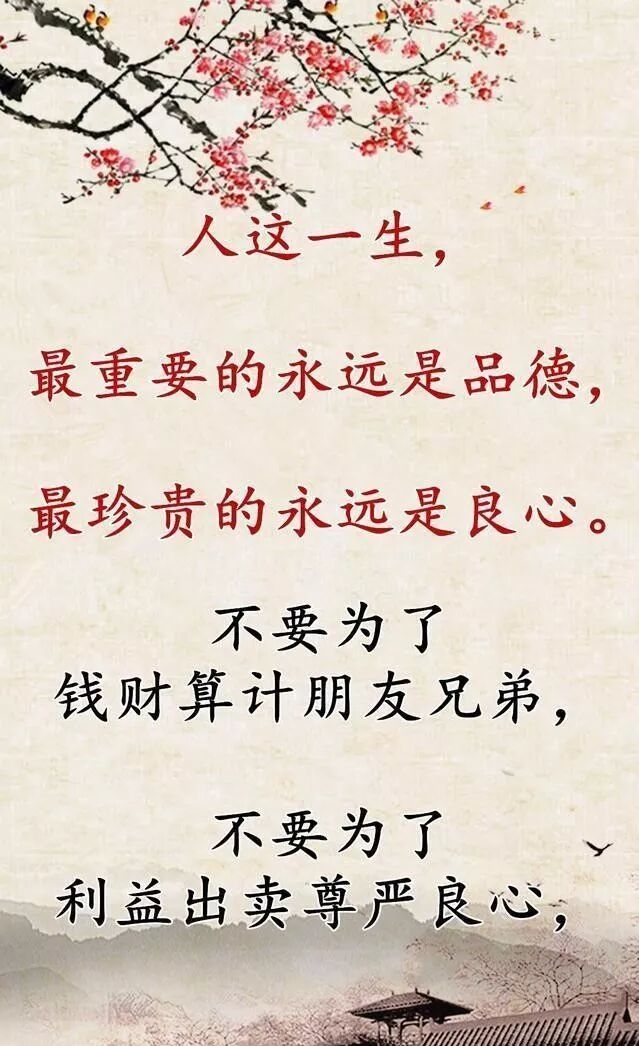 人这一生，
最重要的永远是品德，
最珍贵的永远是良心。
不要为了
钱财算计朋友兄弟，
不要为了
利益出卖尊严良心，